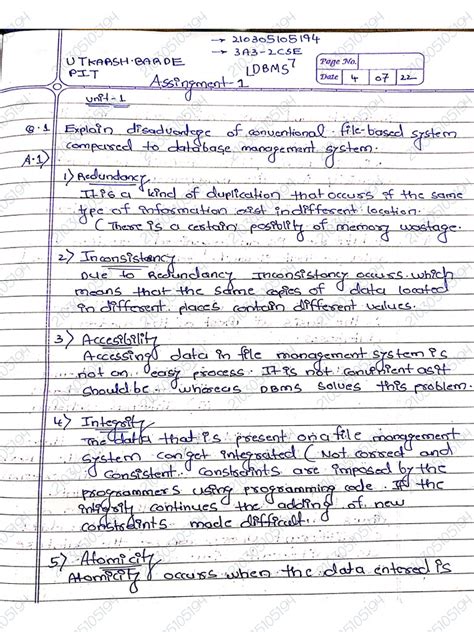 → 210305105194
→ 3A3-2CSE
UTKARSH.BARDE
PIT
[DBMS]
Page No.
Date 4 07 22
Assingment-1
unit-1
Q.1 Explain disadvantage of conventional file-based system
compared to database management system.
A.1)
1) Redundancy
It is a kind of duplication that occurs if the same
type of information exist in different location.
( There is a certain posiblity of memory wastage.
2) Inconsistency
Due to Redundancy Inconsistancy occurs. which
means that the same copies of data located
in different places contain different values.
3) Accesibility
Accessing data in file management system is
not an easy process. It is not convenient as it
should be. whereas DBMS solves this problem.
4) Integrity
The data that is present on a file management
system can get integrated ( Not correct and
consistent. constraints are imposed by the
programmers using programming code. If the
integrity continues the adding of new
constraints made difficult.
5) Atomicity
Atomicity occurs when the data entered is